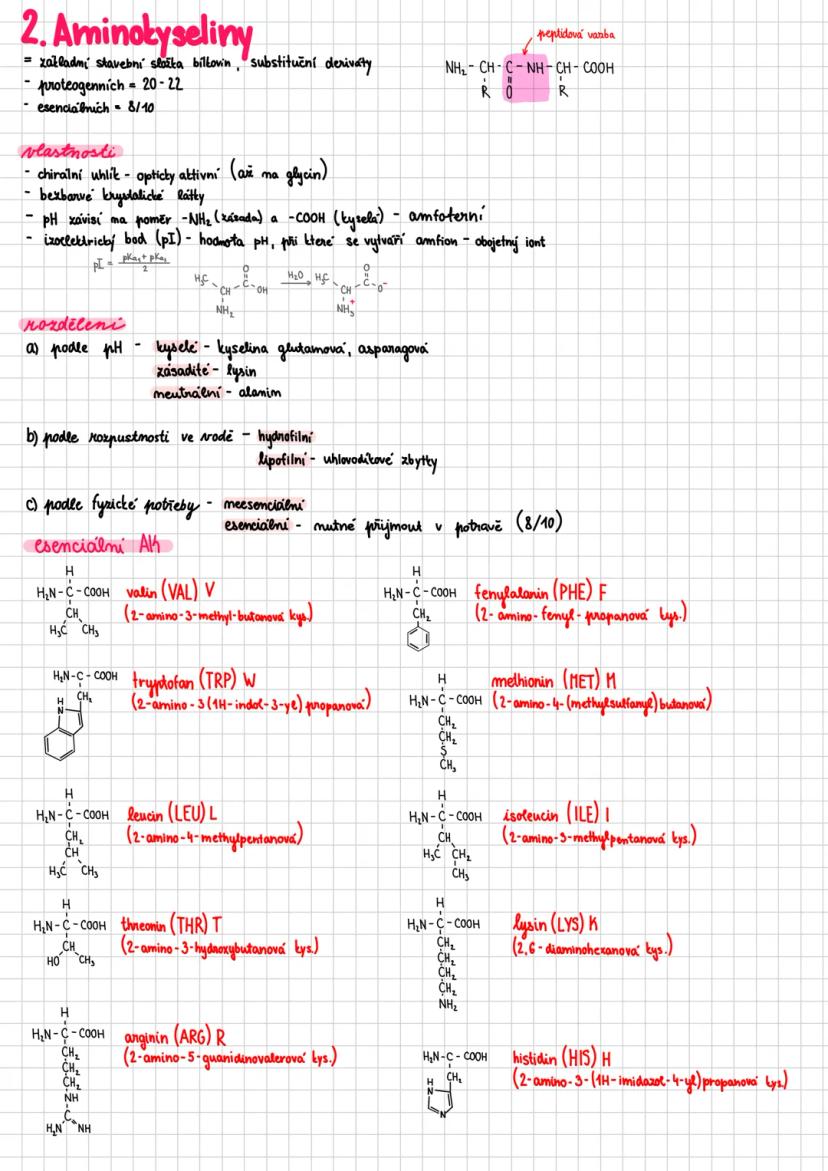 2. Aminokyseliny
= základní stavební složka bílkovin, substituční deriváty
- proteogenních = 20-22
- esenciálních = 8/10
peptidová vazba
NH₂ - CH - C - NH - CH - COOH
R O R
vlastnosti
- chirální uhlík - opticky aktivní (až na glycin)
- bezbarvé krystalické látky
- pH závisí na poměr -NH₂ (zásada) a -COOH (kyselá) - amfoterní
- izoelektrický bod (pI) - hodnota pH, při které se vytváří amfion - obojetný iont
pI = pKa₁ + pKa₂ / 2
O O
H₃C CH C OH H₂O H₃C CH C O⁻
NH₂ NH₃⁺
rozdělení
a) podle pH - kyselé - kyselina glutamová, asparagová
zásadité - lysin
neutrální - alanin
b) podle rozpustnosti ve vodě - hydrofilní
lipofilní - uhlovodíkové zbytky
c) podle fyzické potřeby - neesenciální
esenciální - nutné přijmout v potravě (8/10)
esenciální AK
H
H₂N - C - COOH
CH
H₃C CH₃
valin (VAL) V
(2-amino-3-methyl-butanová kys.)
H
H₂N - C - COOH
CH₂
fenylalanin (PHE) F
(2-amino-fenyl-propanová kys.)
H₂N - C - COOH
CH₂
H
N
tryptofan (TRP) W
(2-amino-3(1H-indol-3-yl) propanová)
H
H₂N - C - COOH
CH₂
CH₂
S
CH₃
methionin (MET) M
(2-amino-4-(methylsulfanyl) butanová)
H
H₂N - C - COOH
CH₂
CH
H₃C CH₃
leucin (LEU) L
(2-amino-4-methylpentanová)
H
H₂N - C - COOH
CH
H₃C CH₂
CH₃
isoleucin (ILE) I
(2-amino-3-methylpentanová kys.)
H
H₂N - C - COOH
CH
HO CH₃
threonin (THR) T
(2-amino-3-hydroxybutanová kys.)
H
H₂N - C - COOH
CH₂
CH₂
CH₂
CH₂
NH₂
lysin (LYS) K
(2,6-diaminohexanová kys.)
H
H₂N - C - COOH
CH₂
CH₂
CH₂
NH
C
H₂N NH
arginin (ARG) R
(2-amino-5-guanidinovalerová kys.)
H₂N - C - COOH
CH₂
H
N
N
histidin (HIS) H
(2-amino-3-(1H-imidazol-4-yl)propanová kys.)